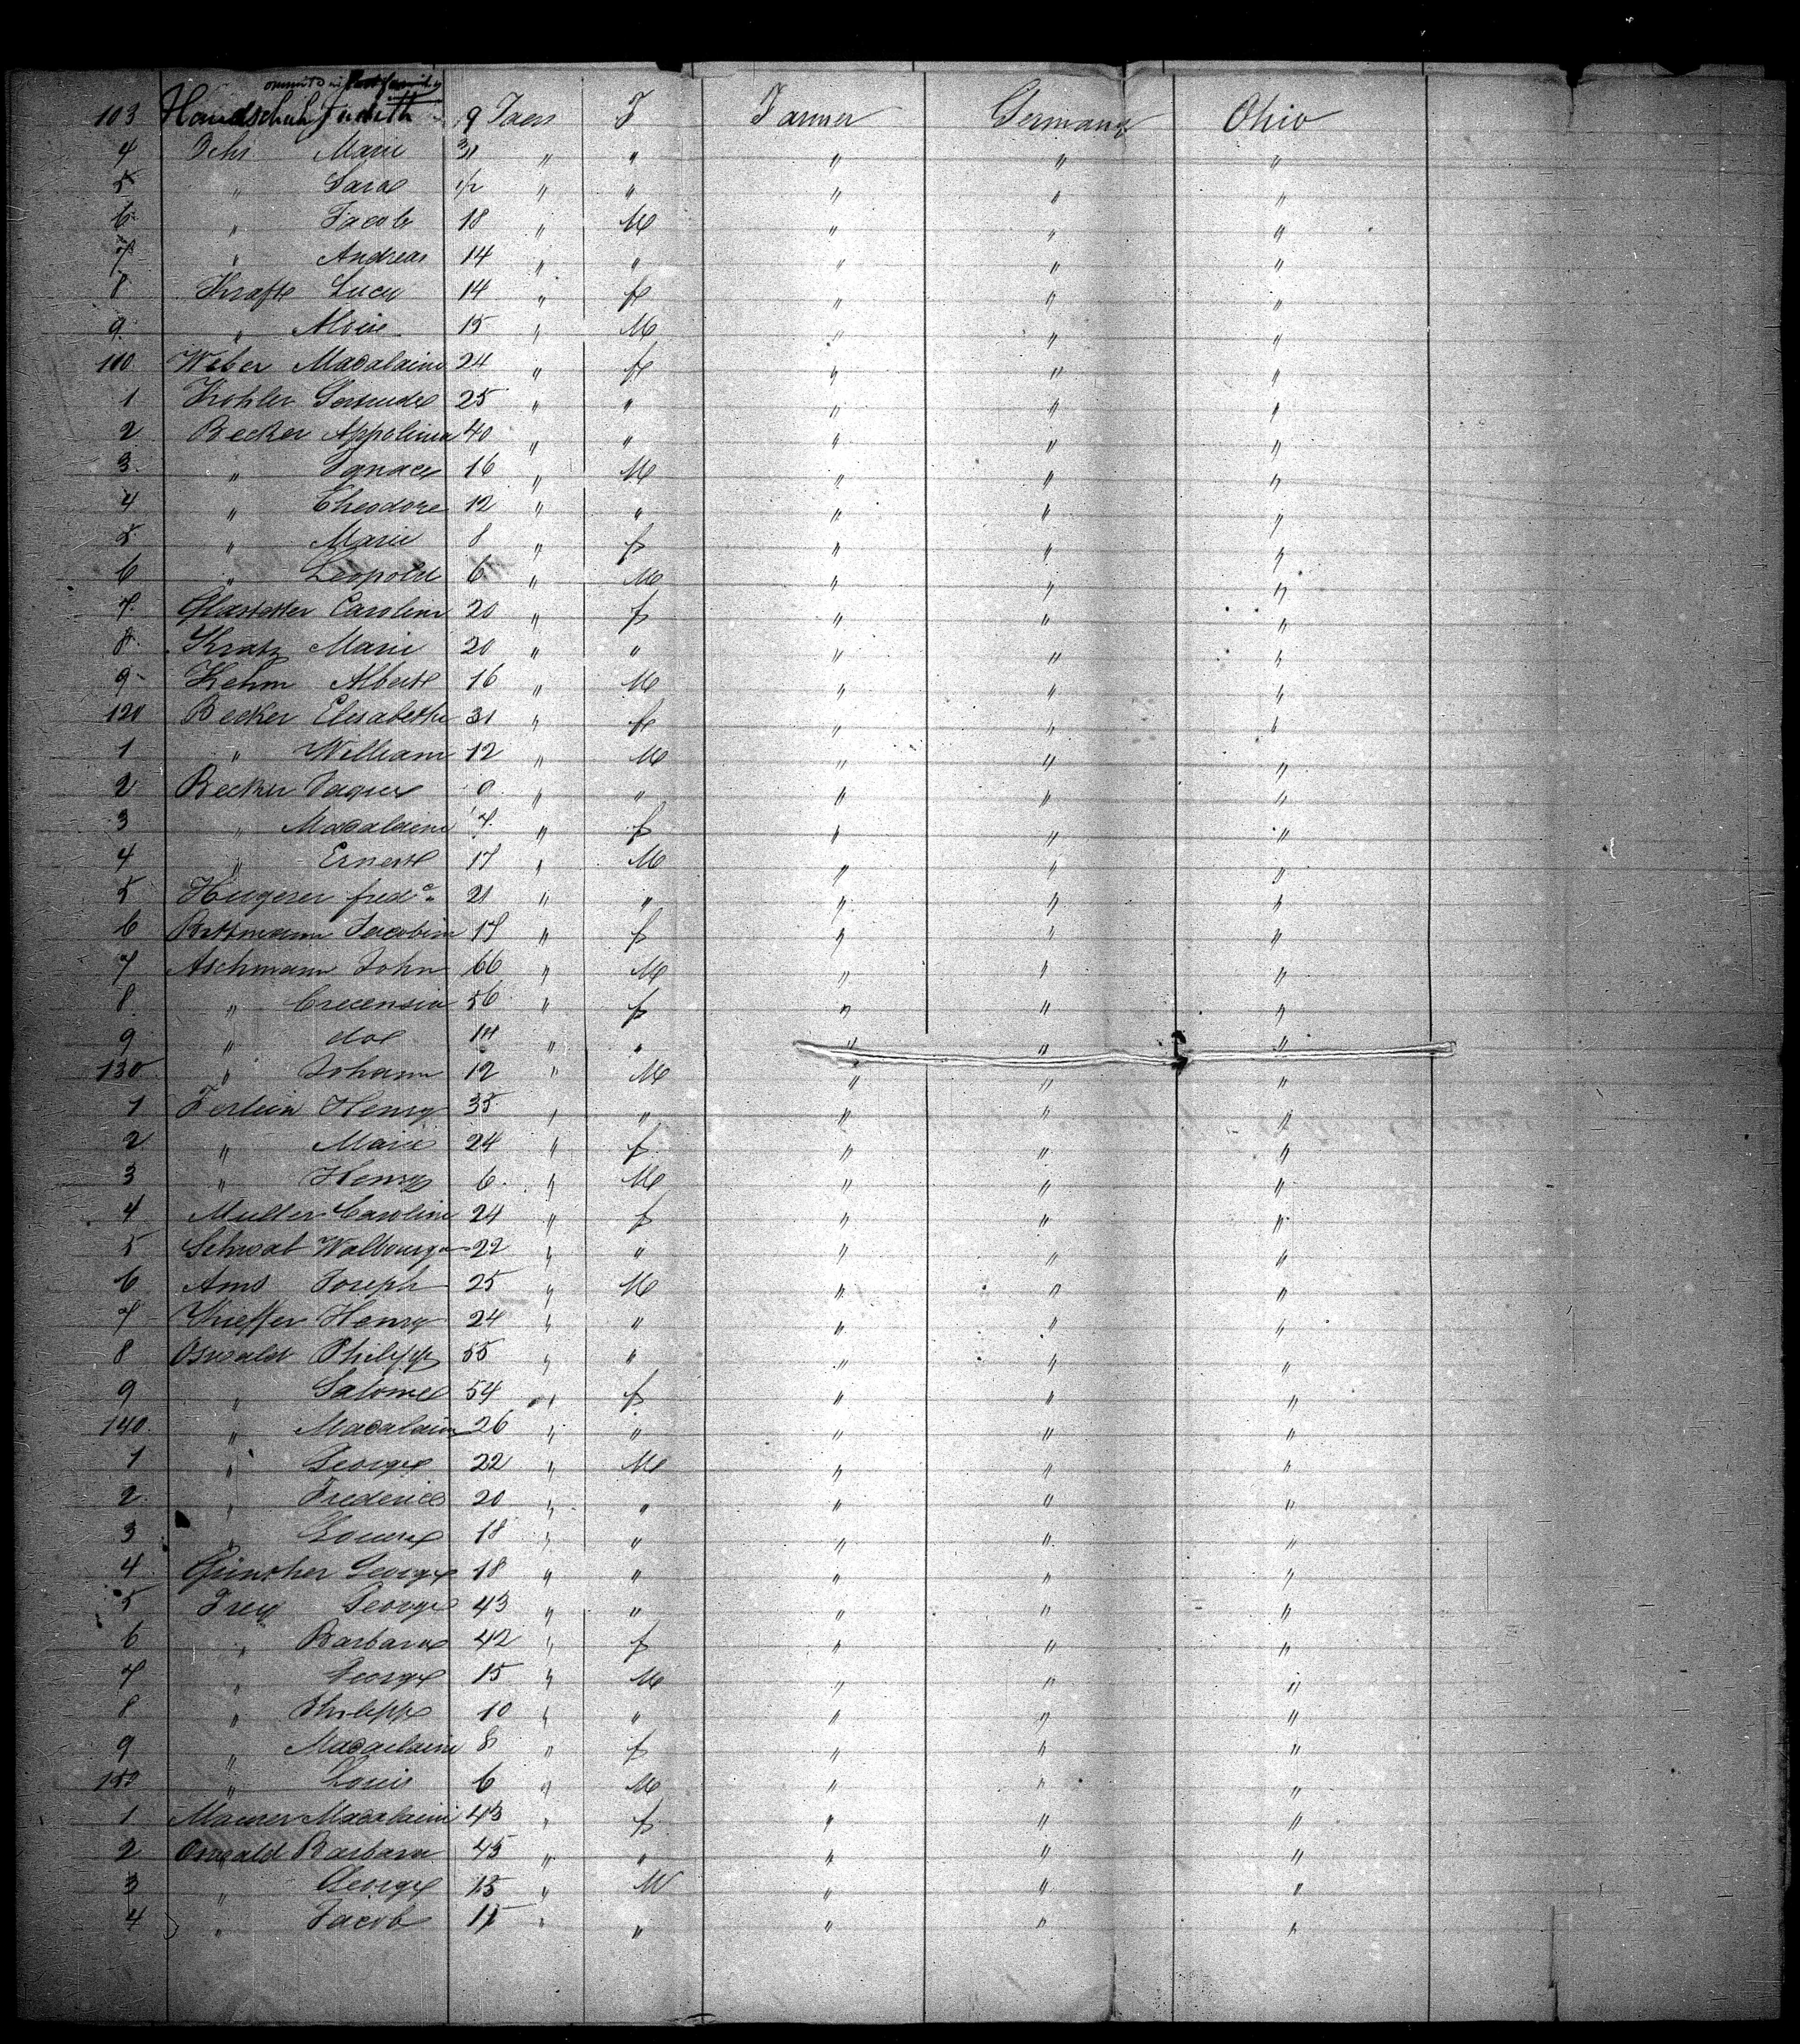 ommitd in last family
103 Handschuh Judith 9 Years F Farmer Germany Ohio
4 Ochs Marie 31 " " " " "
5 " Sara 1/2 " " " " "
6 " Jacob 18 " M " " "
7 " Andreas 14 " " " " "
8 Kraft Lucy 14 " f " " "
9 " Aloise 15 " M " " "
110 Weber Madalaine 24 " f " " "
1 Kohler Gertrude 25 " " " " "
2 Becker Appolina 40 " " " " "
3 " Ignace 16 " M " " "
4 " Theodore 12 " " " " "
5 " Marie 8 " f " " "
6 " Leopold 6 " M " " "
7 Glastetter Caroline 20 " f " " "
8 Kratz Marie 20 " " " " "
9 Kehm Albert 16 " M " " "
120 Becker Elisabethe 31 " f " " "
1 " William 12 " M " " "
2 Becker " " " " "
3 " Madalaine 7 " f " " "
4 " Ernest 17 " M " " "
5 fredc 21 " " " " "
6 Jacobine 17 " f " " "
7 Aschmann John 66 " M " " "
8 " Crecensia 56 " f " " "
9 " do 14 " " " " "
130 " Johann 12 " M " " "
1 Henry 35 " " " " "
2 " Marie 24 " f " " "
3 " Henry 6 " M " " "
4 Muller Caroline 24 " f " " "
5 Schwab Walbourga 22 " " " " "
6 Joseph 25 " M " " "
7 Henry 24 " " " " "
8 Oswald Philipp 55 " " " " "
9 " Salome 54 " f " " "
140 " Madalaine 26 " " " " "
1 " George 22 " M " " "
2 " Frederic 20 " " " " "
3 " Louise 18 " " " " "
4 Günther George 18 " " " " "
5 Frey George 43 " " " " "
6 " Barbara 42 " f " " "
7 " George 15 " M " " "
8 " Philippe 10 " " " " "
9 " Madaelaine 8 " f " " "
150 " Louis 6 " M " " "
1 Maurer Madalaine 43 " f " " "
2 Oswald Barbara 45 " " " " "
3 " George 15 " M " " "
4 " Jacob " " " " "